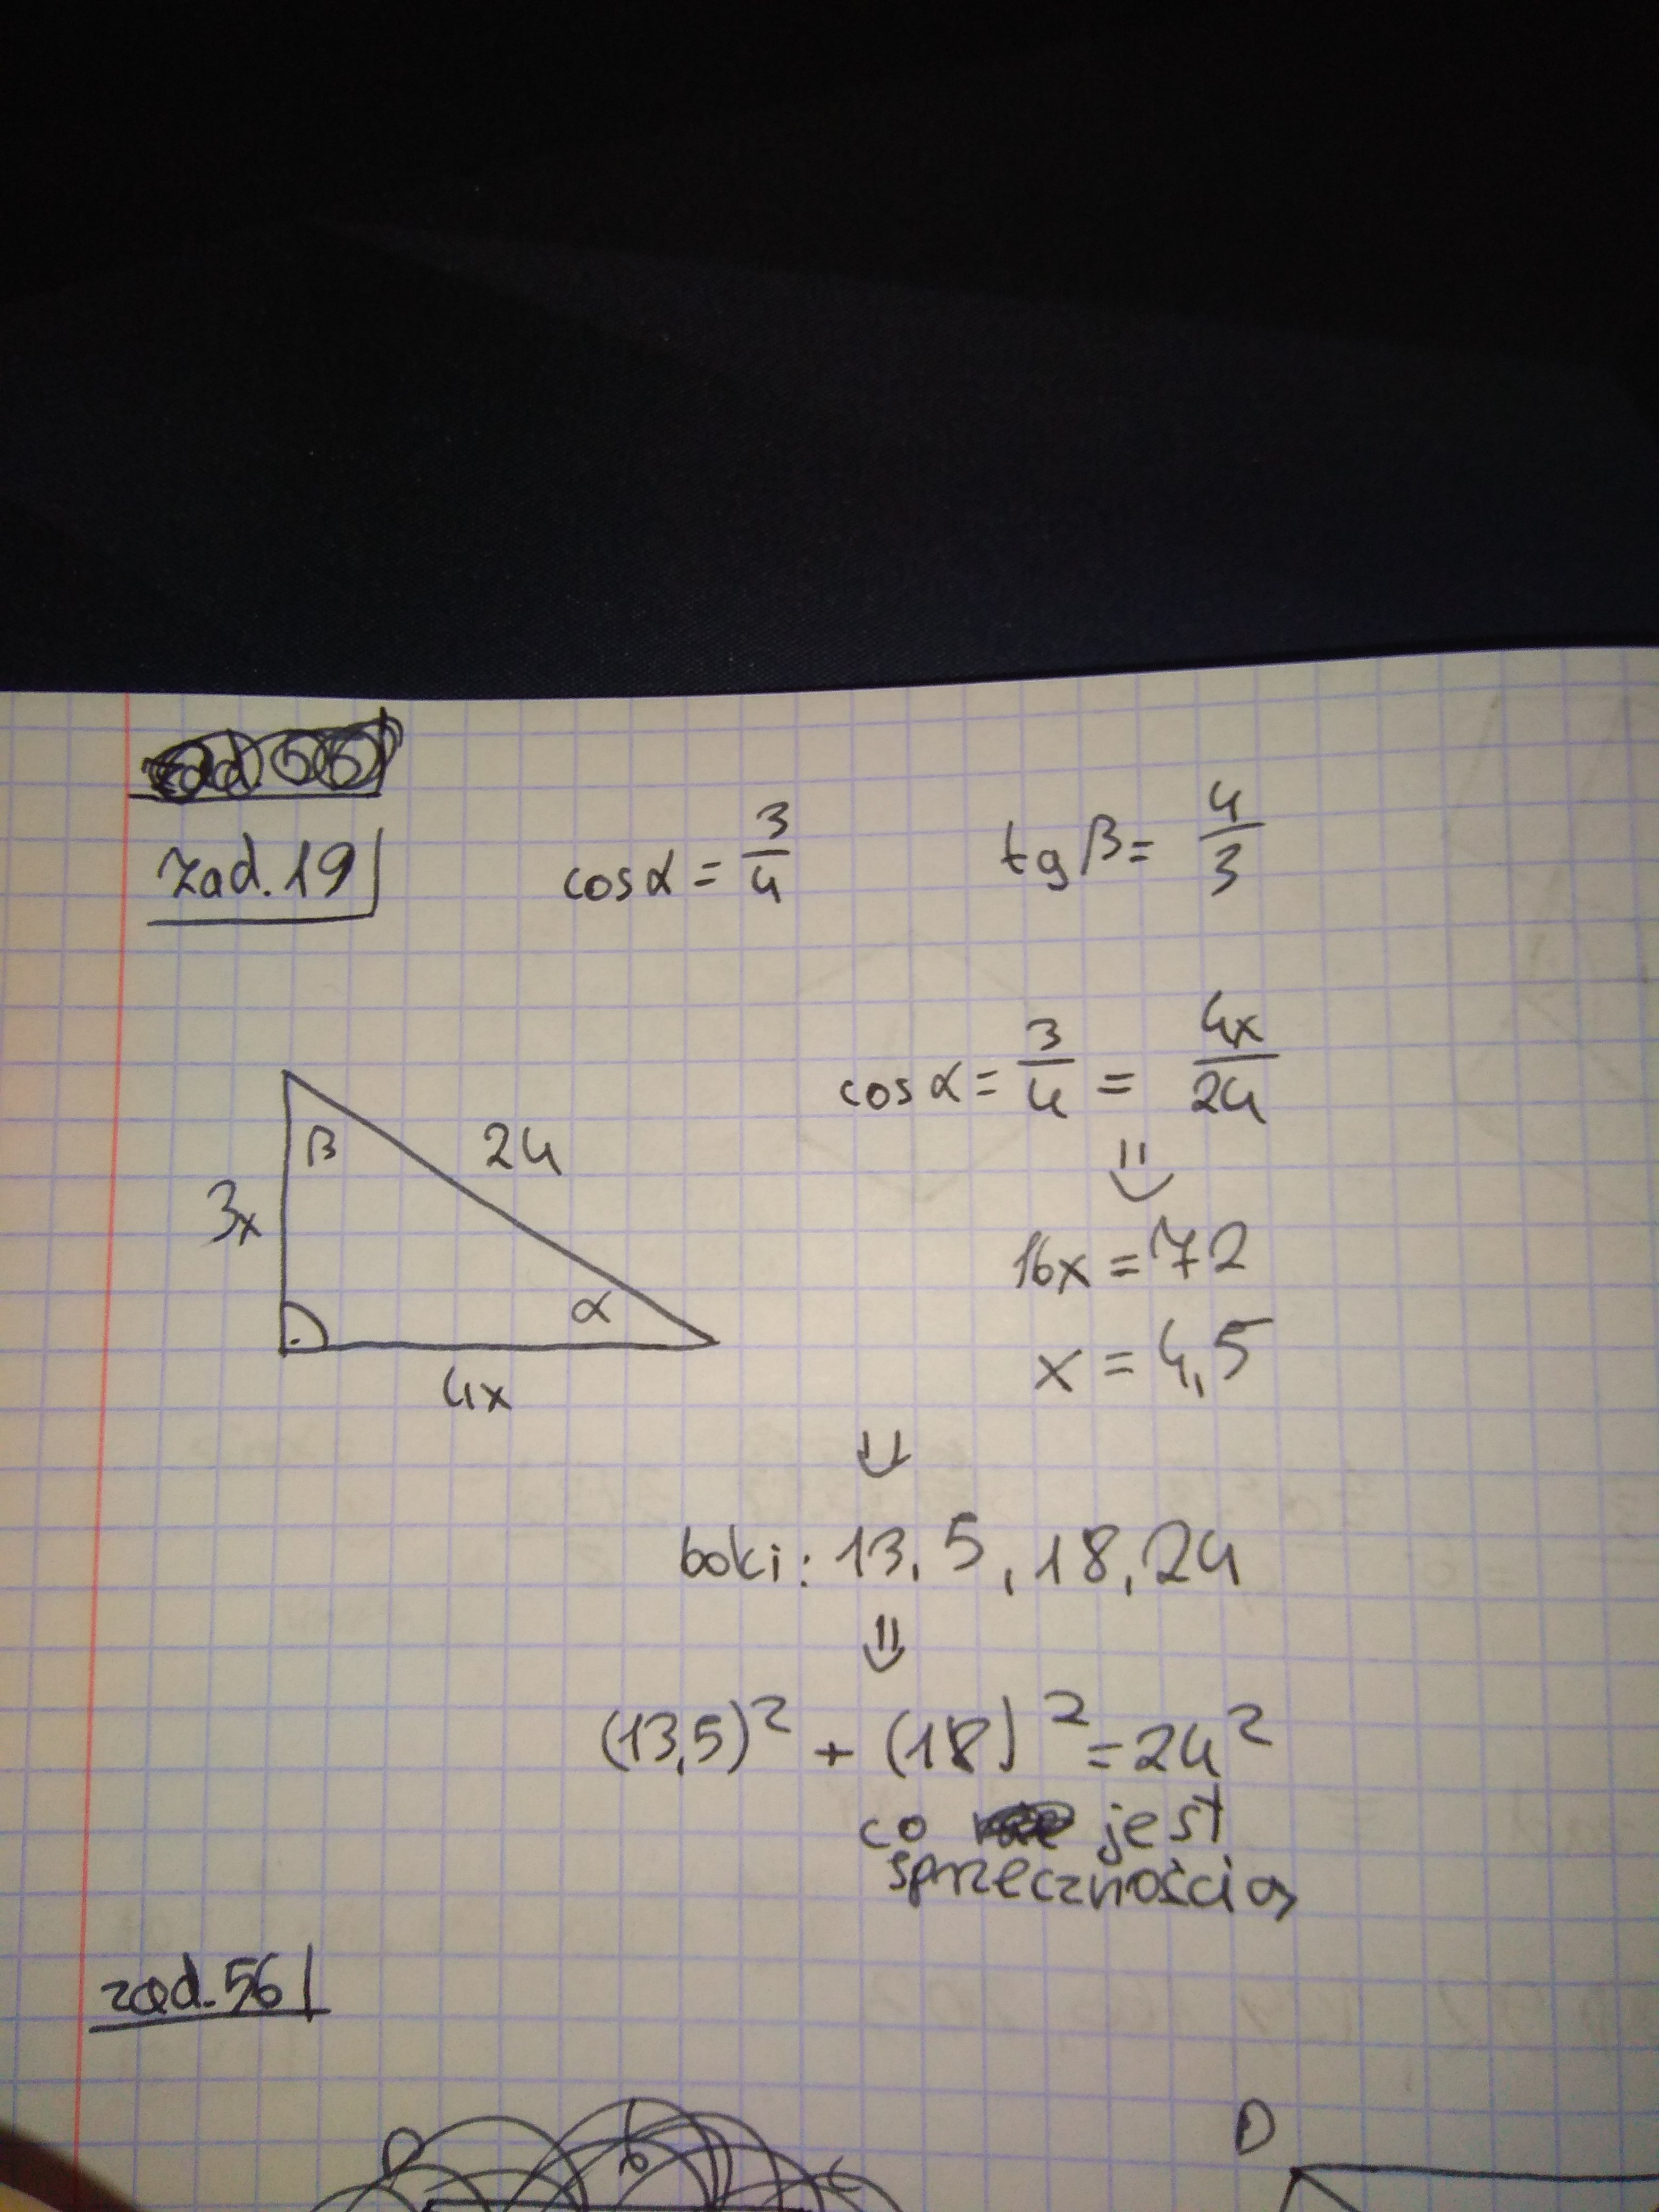 zad. 19
cos α = 3/4
tg β = 4/3
cos α = 3/4 = 4x/24
⇓
16x = 72
x = 4,5
β
24
3x
α
4x
⇓
boki: 13,5, 18, 24
⇓
(13,5)² + (18)² = 24²
co jest
sprzecznością
zad. 56
D